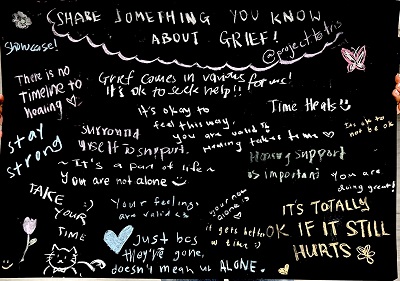 SHARE SOMETHING YOU KNOW
ABOUT GRIEF!
Showcase!
There is no
Timeline to
healing ♡
Grief comes in various forms!
It's ok to seek help!!
It's okay to
feel this way,
you are valid
Healing takes time ♡
Time Heals
Its ok to
not be ok
stay
strong
Surround
urself to support.
~ It's a part of life ~
You are not alone
Having support
is important!
you are
doing great!
TAKE
YOUR
TIME
:)
Your feelings
are valid
your not
alone
it gets better
w time :)
IT'S TOTALLY
OK IF IT STILL
HURTS
Just bcs
they're gone,
doesn't mean ur ALONE.